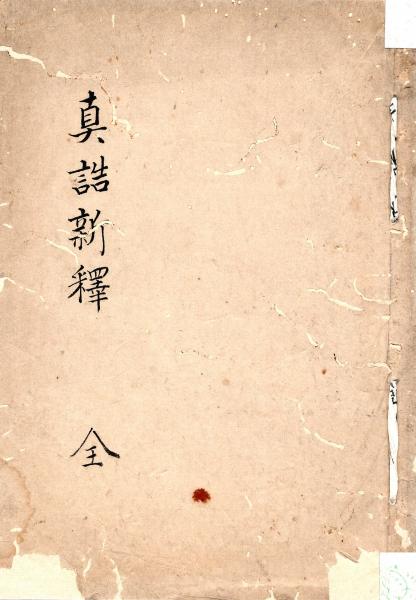 真誥新釋
全